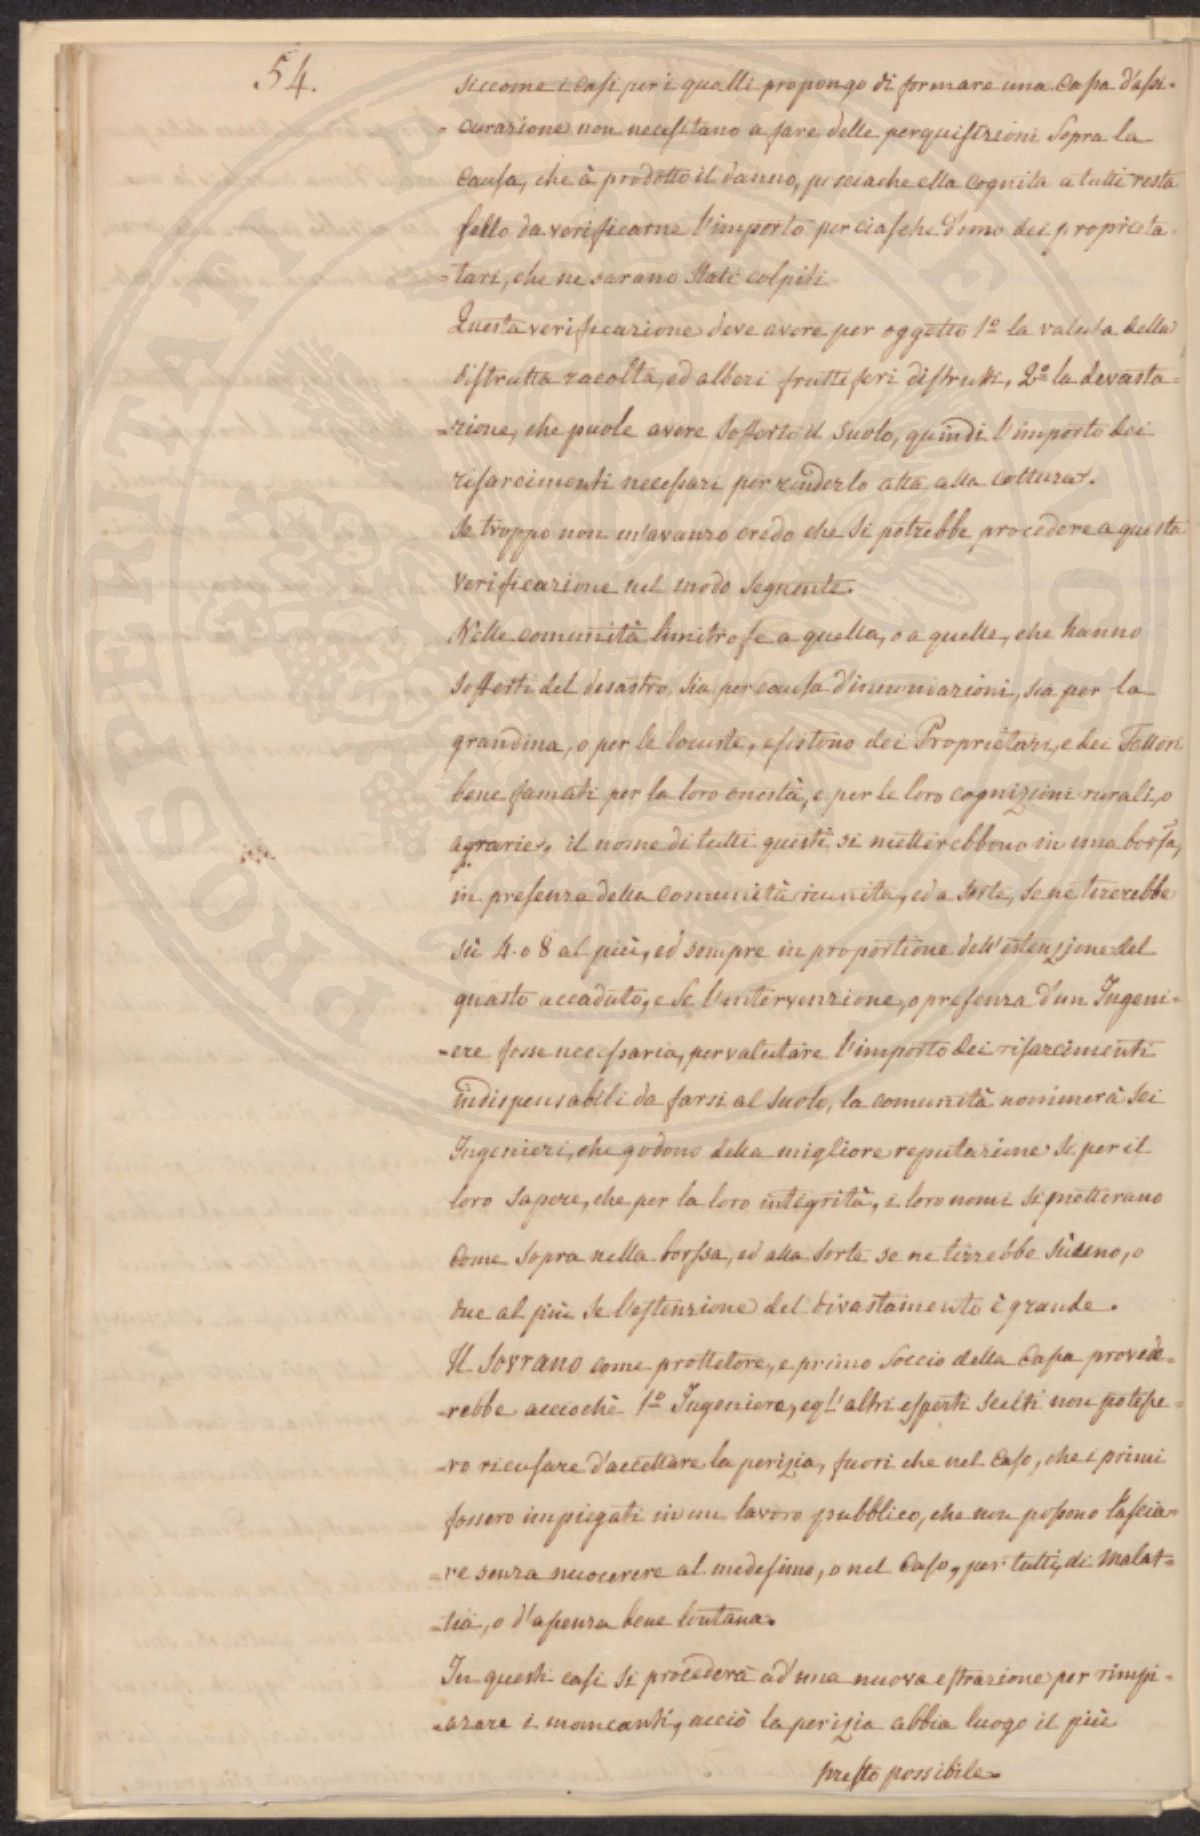 54.
Siccome i casi per i qualli propongo di formare una Cassa d'assi-
-curazione non necessitano a fare delle perquisizioni sopra la
Causa, che à prodotto il danno, poiciache ella cognita a tutti resta
sollo da verificarne l'importo per ciaschedumo dei proprieta-
-tari, che ne sarano stati colpiti
Questa verificazione deve avere per oggetto 1º la valuta della
distrutta racolta, ed alberi fruttiferi distrutti, 2º la devasta-
-zione, che puole avere sofferto il suolo, quindi l'importo dei
risarcimenti necessari per renderlo atta alla coltura.
Se troppo non m'avanzo credo che si potrebbe procedere a questa
verificazione nel modo seguente.
Nelle comunità limitrofe a quella, o a quelle, che hanno
sofferti del desastro, sia per causa d'innoniazioni, sia per la
grandina, o per le locuste, esistono dei Proprietari, e dei Fattori
bene famati per la loro onestà, e per le loro cognizioni rurali, o
agrarie, il nome di tutti questi si metterebbono in una borsa,
in presenza della comunità riunita, ed a sorte, se ne tirerebbe
sù 4. o 8 al più, ed sempre in proportione dell'estenzione del
quasto accaduto, e se l'intervenzione, o presenza d'un Ingeni-
-ere fosse necessaria, per valutare l'importo dei risarcimenti
indispensabili da farsi al suolo, la comunità nominerà sei
Ingenieri, che godono della migliore reputazione si per il
loro sapere, che per la loro integrità, i loro nomi si metterano
come sopra nella borssa, ed alla sorte se ne tirrebbe sù uno, o
due al più se l'estenzione del divastamento è grande.
Il SOVRANO come prottetore, e primo soccio della Cassa provede-
-rebbe acciochè 1º Ingeniere, e gl'altri esperti scelti non potesse-
-ro ricusare d'accettare la perizia, fuori che nel caso, che i primi
fossero impiegati in un lavoro pubblico, che non possono lascia-
-re senza nuocerere al medesimo, o nel caso, per tutti, di malat-
-tia, o d'assenza bene lontana.
In questi casi si procederà ad una nuova estrazione per rimpi-
-azare i mancanti, acciò la perizia abbia luogo il più
presto possibile.
PROSPERITATI PUBLICAE AUGENDAE